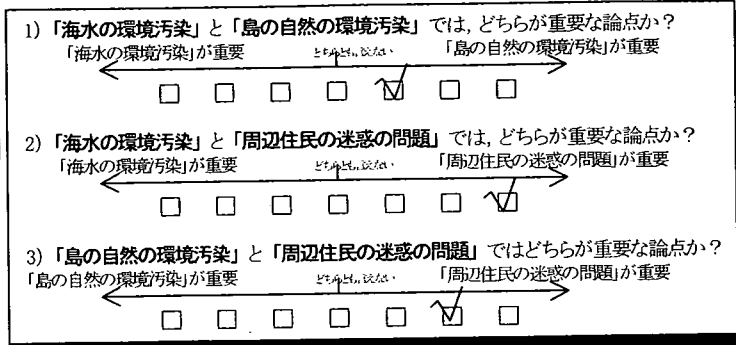 1) 「海水の環境汚染」と「島の自然の環境汚染」では, どちらが重要な論点か?
「海水の環境汚染」が重要 どちらとも言えない 「島の自然の環境汚染」が重要
2) 「海水の環境汚染」と「周辺住民の迷惑の問題」では, どちらが重要な論点か?
「海水の環境汚染」が重要 どちらとも言えない 「周辺住民の迷惑の問題」が重要
3) 「島の自然の環境汚染」と「周辺住民の迷惑の問題」ではどちらが重要な論点か?
「島の自然の環境汚染」が重要 どちらとも言えない 「周辺住民の迷惑の問題」が重要